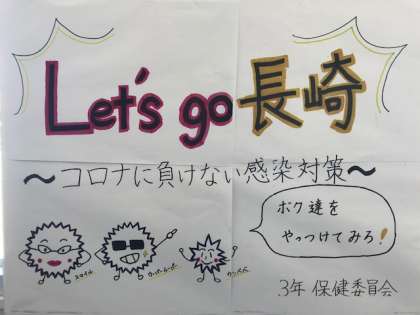 Let's go 長崎
～コロナに負けない感染対策～
ボク達を
やっつけてみろ!
3年 保健委員会